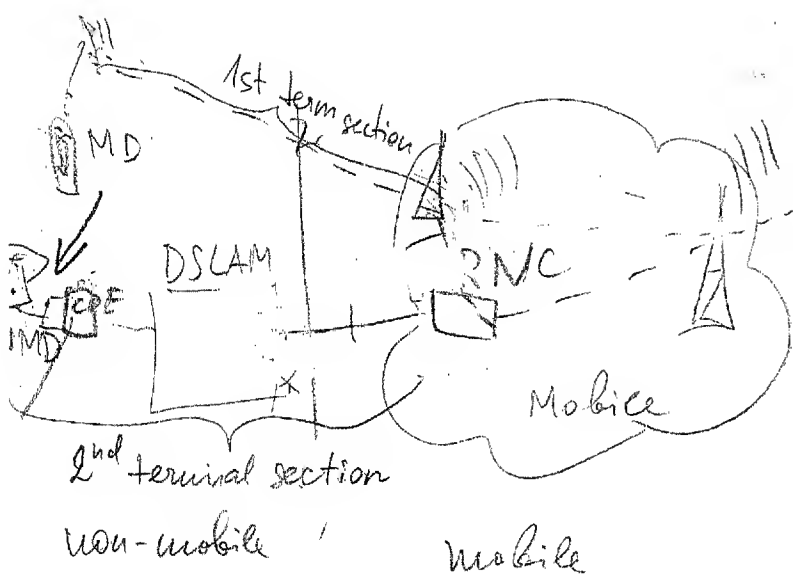 1st term section
MD
DSLAM
RNC
CPE
IMD
x
Mobile
2nd terminal section
non-mobile
mobile